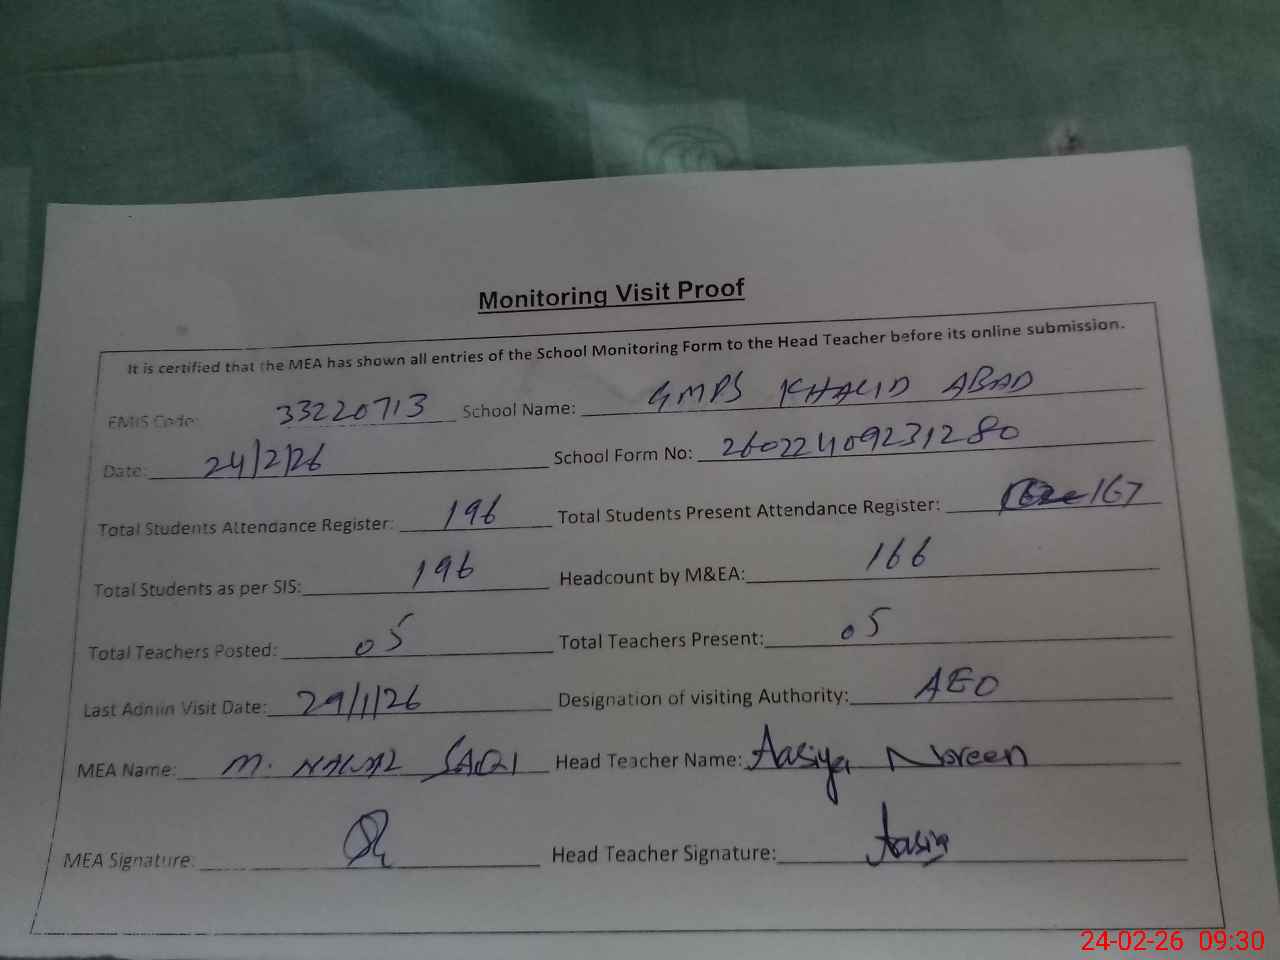 Monitoring Visit Proof
It is certified that the MEA has shown all entries of the School Monitoring Form to the Head Teacher before its online submission.
EMIS Code: 33220713 School Name: GMPS KHALID ABAD
Date: 24/2/26 School Form No: 26022409231280
Total Students Attendance Register: 196 Total Students Present Attendance Register: 167
Total Students as per SIS: 196 Headcount by M&EA: 166
Total Teachers Posted: 05 Total Teachers Present: 05
Last Admin Visit Date: 29/1/26 Designation of visiting Authority: AEO
MEA Name: M. NAWAZ SAQI Head Teacher Name: Aasiya Noreen
MEA Signature: Head Teacher Signature: Aasiya
24-02-26 09:30